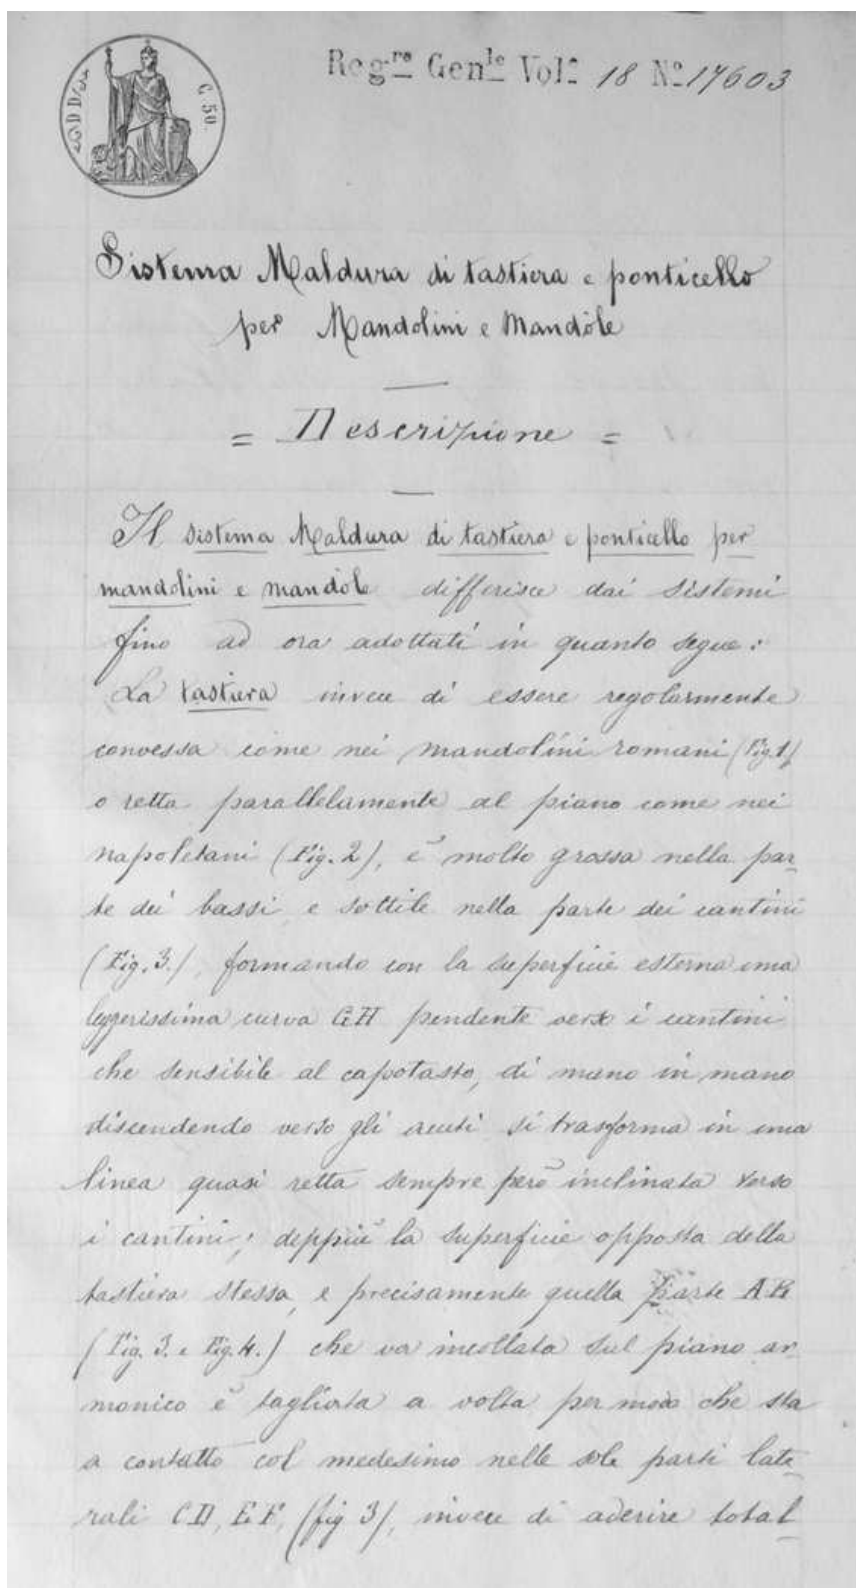 Reg.ro Gen.le Vol.o 18 N.o 17603
C. 50.
Sistema Maldura di tastiera e ponticello
per Mandolini e Mandòle
= Descrizione =
Il sistema Maldura di tastiera e ponticello per
mandolini e mandòle differisce dai sistemi
fino ad ora adottati in quanto segue:
La tastiera invece di essere regolarmente
convessa come nei mandolini romani (Fig. 1)
o retta parallelamente al piano come nei
napoletani (Fig. 2), è molto grossa nella par-
te dei bassi e sottile nella parte dei cantini
(Fig. 3.), formando con la superficie esterna una
leggerissima curva GH pendente verso i cantini
che sensibile al capotasto, di mano in mano
discendendo verso gli acuti si trasforma in una
linea quasi retta sempre però inclinata verso
i cantini; deppiù la superficie opposta della
tastiera stessa, e precisamente quella parte AB
(Fig. 3. e Fig. 4.) che va incollata sul piano ar-
monico è tagliata a volta per modo che sta
a contatto col medesimo nelle sole parti late-
rali CD, EF, (fig 3), invece di aderire total-